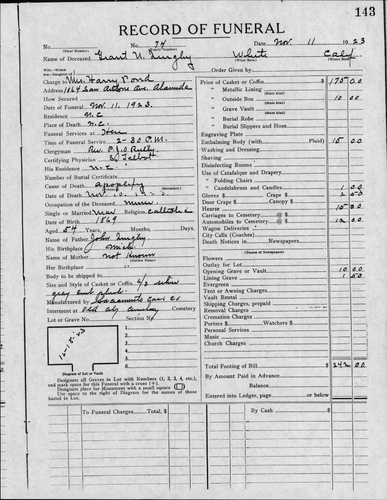 143
RECORD OF FUNERAL
No. 74 Date Nov. 11 1923
(Total Number) (Yearly Number)
Name of Deceased Grant White Calif
Wife—Widow—
Son—Daughter of
Charge to Mrs. Harry Pond Order Given by
Address 1064 San Antone Ave. Alameda
How Secured
Date of Nov. 11. 1923.
Residence N.C.
Place of Death N.C.
Funeral Services at Here
Time of Funeral Service 2-30 P.M.
Clergyman Rev.
Certifying Physician Talbott
His Residence N.C.
Number of Burial Certificate
Cause of Death Apoplexy
Date of Death Nov. 10.
Occupation of the Deceased Miner
Single or Married Religion Catholic
Date of Birth 1869
Aged 54 Years, Months, Days.
Name of Father John
His Birthplace
Name of Mother not Known
(Maiden Name)
Her Birthplace
Body to be shipped to
Size and Style of Casket or Coffin
gray
Manufactured by Sacramento
Interment at Cemetery
Lot or Grave No. Section No.
1
2
3
4
5
6
Diagram of Lot or Vault
Designate all Graves in Lot with Numbers (1, 2, 3, 4, etc.), and mark space for this Funeral with a cross (+).
Designate place for Monument with a small square
Use space to the right of Diagram for the names of those buried in Lot.
To Funeral Charges $
Price of Casket or Coffin $ 175 00
" Metallic Lining
" Outside Box 10 00
" Grave Vault
" Burial Robe
" Burial Slippers and Hose
Engraving Plate
Embalming Body (with Fluid) 15 00
Washing and Dressing
Shaving
Disinfecting Rooms
Use of Catafalque and Drapery
" Folding Chairs
" Candelabrum and Candles 1 00
Gloves $ Crape $ 2 50
Door Crape, Canopy
Hearse 15 00
Carriages to Cemetery @ $
Automobiles to Cemetery @ $ 12 00
Wagon Deliveries
City Calls (Coaches)
Death Notices in Newspapers
(Names of Newspapers)
Flowers
Outlay for Lot
Opening Grave or Vault 10 00
Lining Grave 1 50
Evergreen
Tent or Awning Charges
Vault Rental
Shipping Charges, prepaid
Removal Charges
Cremation Charges
Porters $ Watchers $
Personal Services
Music
Church Charges
Total Footing of Bill $ 242 00
By Amount Paid in Advance
Balance
Entered into Ledger, page or below.
By Cash $